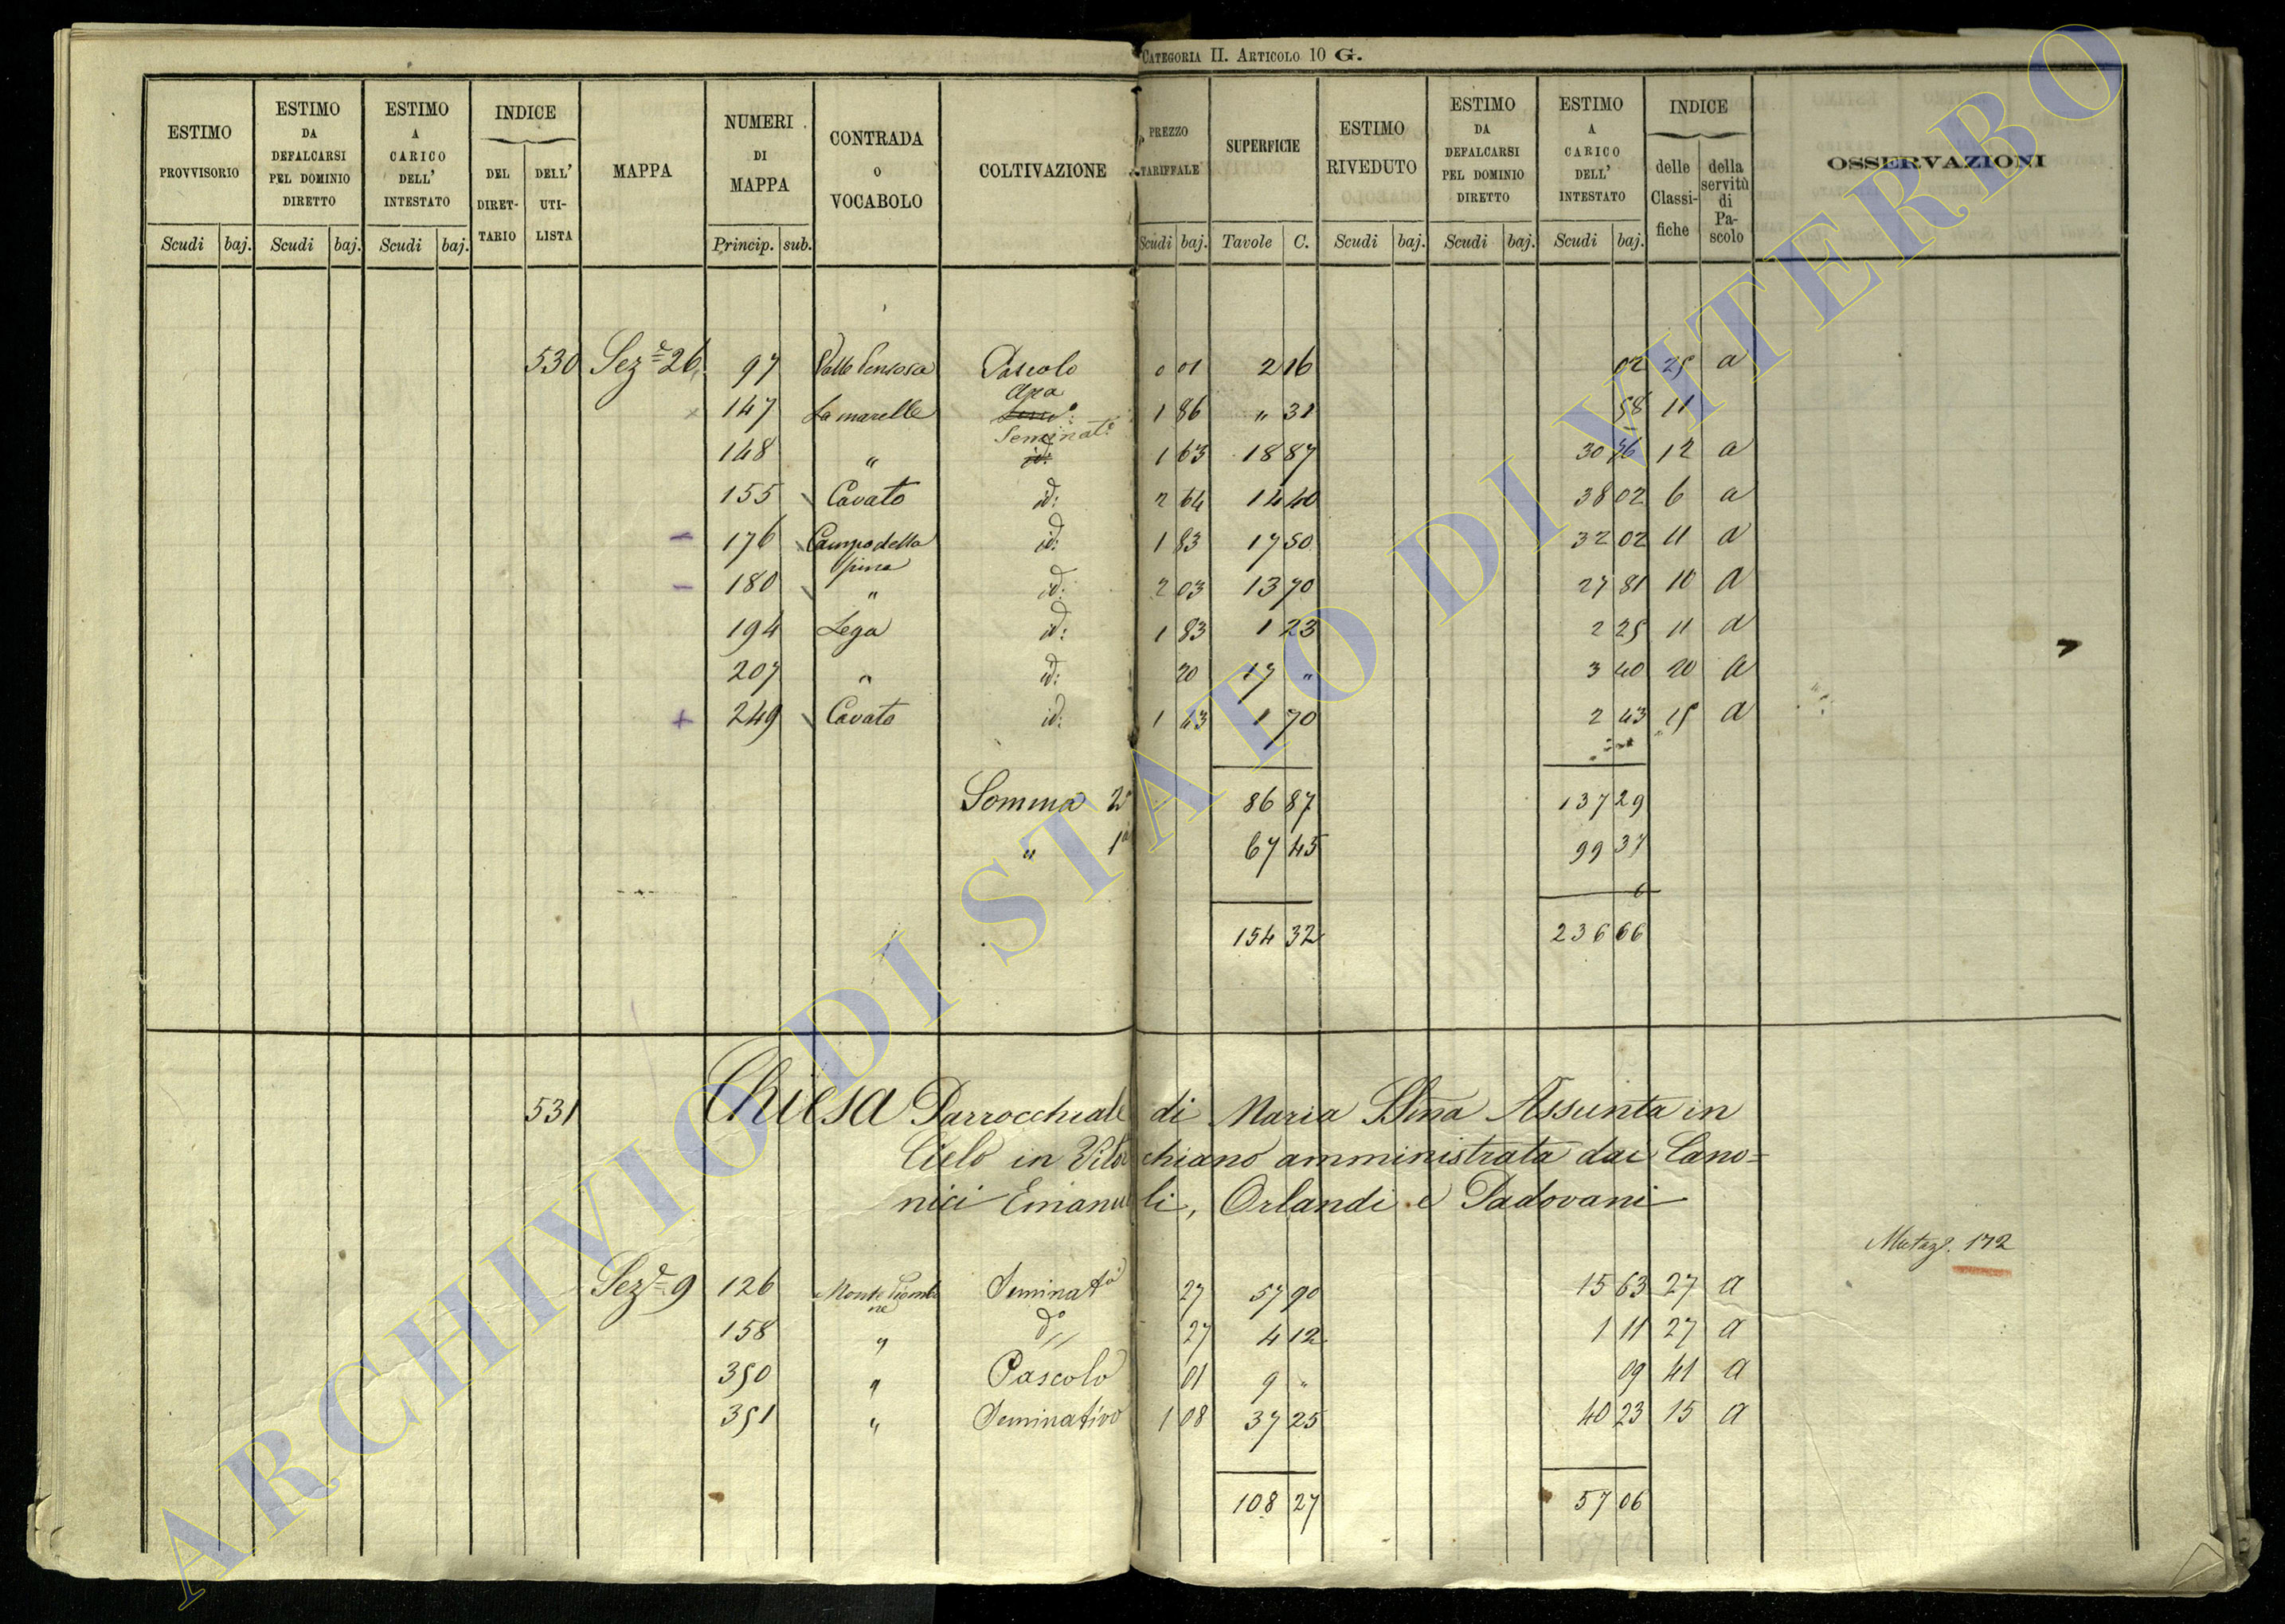 CATEGORIA II. ARTICOLO 10 G.
ESTIMO PROVVISORIO Scudi baj.
ESTIMO DA DEFALCARSI PEL DOMINIO DIRETTO Scudi baj.
ESTIMO A CARICO DELL' INTESTATO Scudi baj.
INDICE
DEL DIRET-TARIO
DELL' UTI-LISTA
MAPPA
NUMERI DI MAPPA Princip. sub.
CONTRADA O VOCABOLO
COLTIVAZIONE
PREZZO TARIFFALE Scudi baj.
SUPERFICIE Tavole C.
ESTIMO RIVEDUTO Scudi baj.
ESTIMO DA DEFALCARSI PEL DOMINIO DIRETTO Scudi baj.
ESTIMO A CARICO DELL' INTESTATO Scudi baj.
INDICE
delle Classi-fiche
della servitù di Pa-scolo
OSSERVAZIONI
530 Sez.e 26 97 Valle Pascolo 0 01 2 16 02 25 a
147 La marelle Area 1 86 " 31 58 11
148 " Seminat.o id: 1 63 18 87 30 76 12 a
155 Cavato id: 2 64 14 40 38 02 6 a
176 Campo della spina id: 1 83 17 50 32 02 11 a
180 " id: 2 03 13 70 27 81 10 a
194 Lega id: 1 83 1 23 2 25 11 a
207 " id: 20 17 " 3 40 20 a
249 Cavato id: 1 43 1 70 2 43 15 a
Somma 2a 86 87 137 29
" 1a 67 45 99 37
154 32 236 66
531 Chiesa Parrocchiale di Maria SSma Assunta in
Cielo in Vitorchiano amministrata dai Cano=
nici Emanueli, Orlandi e Padovani
Mutaz. 172
Sez.e 9 126 Monte Piombone Seminat.o 27 57 90 15 63 27 a
158 " d.o 27 4 12 1 11 27 a
350 " Pascolo 01 9 " 09 41 a
351 " Seminativo 1 08 37 25 40 23 15 a
108 27 57 06
ARCHIVIO DI STATO DI VITERBO